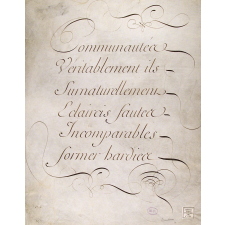 Communautez
Veritablement ils
Surnaturellement
Eclaircis fautez
Incomparables
former hardiez